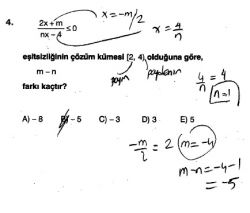 4. (2x+m)/(nx-4) ≤ 0
x = -m/2
x = 4/n
eşitsizliğinin çözüm kümesi [2, 4) olduğuna göre,
payın
paydanın
m – n
farkı kaçtır?
4/n = 4
n=1
A) – 8 B) – 5 C) – 3 D) 3 E) 5
-m/2 = 2 m=-4
m-n=-4-1
=-5